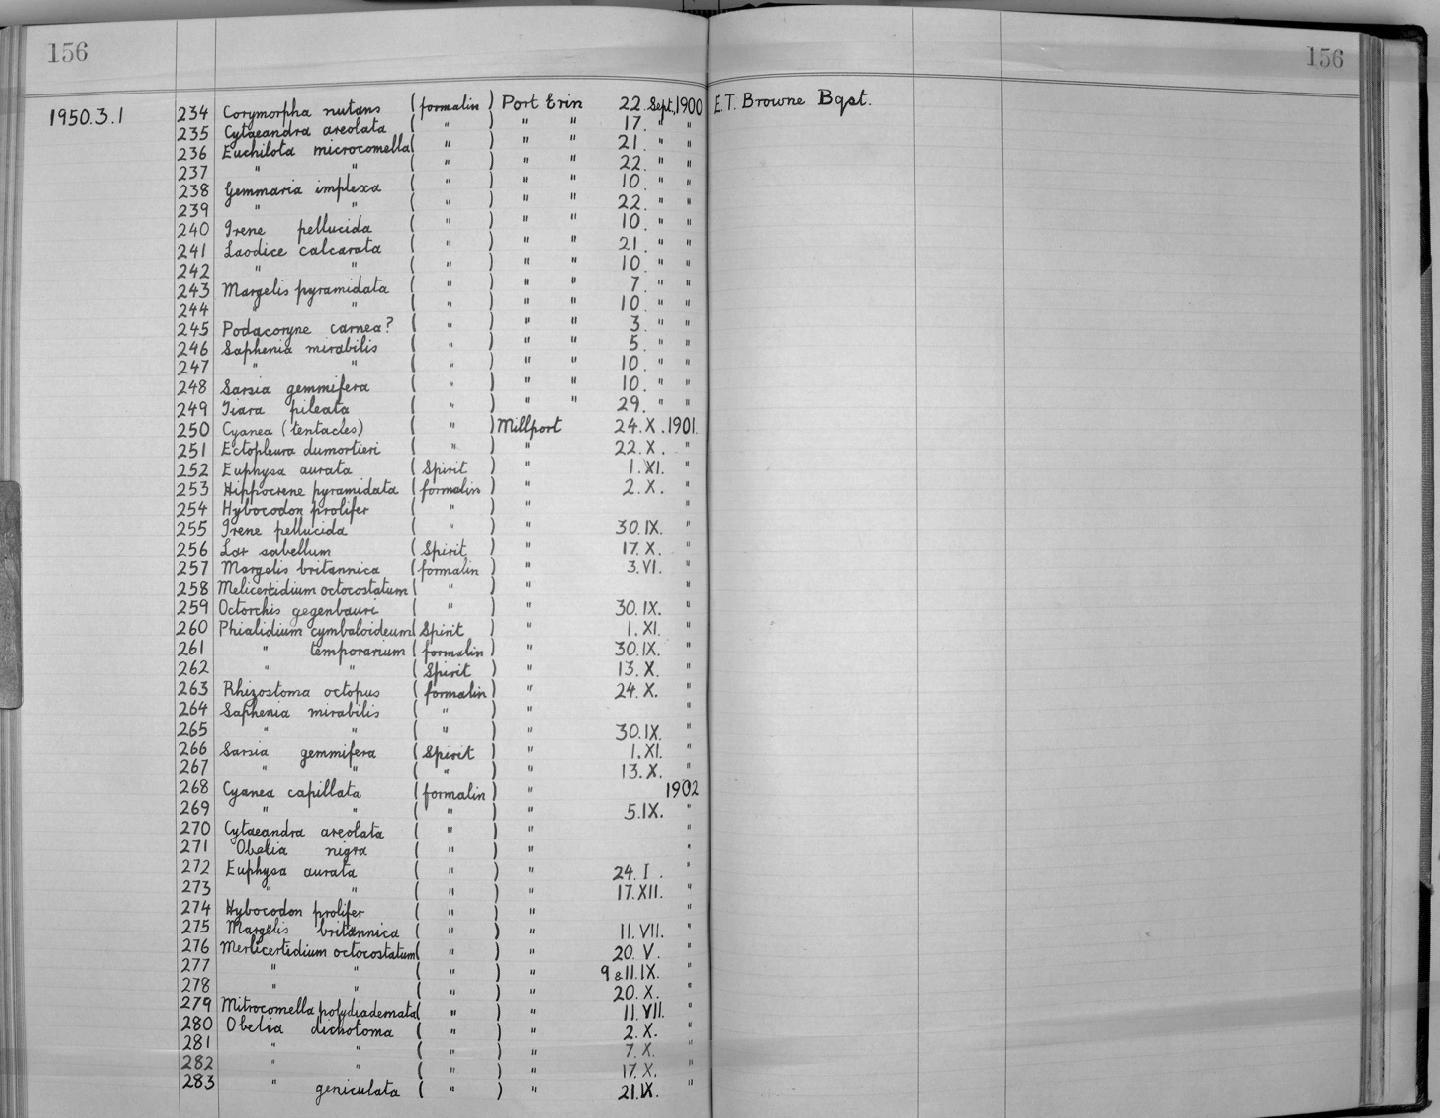 156
156
1950.3.1 234 Corymorpha nutans (formalin) Port Erin 22. Sept, 1900 E.T. Browne Bqst.
235 Cytaeandra areolata ( " ) " " 17. " "
236 Euchilota microcomella ( " ) " " 21. " "
237 " " ( " ) " " 22. " "
238 Gemmaria implexa ( " ) " " 10. " "
239 " " ( " ) " " 22. " "
240 Irene pellucida ( " ) " " 10. " "
241 Laodice calcarata ( " ) " " 21. " "
242 " " ( " ) " " 10. " "
243 Margelis pyramidata ( " ) " " 7. " "
244 " " ( " ) " " 10. " "
245 Podacoryne carnea? ( " ) " " 3. " "
246 Saphenia mirabilis ( " ) " " 5. " "
247 " " ( " ) " " 10. " "
248 Sarsia gemmifera ( " ) " " 10. " "
249 Tiara pileata ( " ) " " 29. " "
250 Cyanea (tentacles) ( " ) Millport 24.X.1901.
251 Ectopleura dumortieri ( " ) " 22.X. "
252 Euphysa aurata (Spirit) " 1.XI. "
253 Hippocrene pyramidata (formalin) " 2.X. "
254 Hybocodon prolifer ( " ) " "
255 Irene pellucida ( " ) " 30.IX. "
256 Lar sabellum (Spirit) " 17.X. "
257 Margelis britannica (formalin) " 3.VI. "
258 Melicertidium octocostatum ( " ) " "
259 Octorchis gegenbauri ( " ) " 30.IX. "
260 Phialidium cymbaloideum (Spirit) " 1.XI. "
261 " temporarium (formalin) " 30.IX. "
262 " " (Spirit) " 13.X. "
263 Rhizostoma octopus (formalin) " 24.X. "
264 Saphenia mirabilis ( " ) " "
265 " " ( " ) " 30.IX. "
266 Sarsia gemmifera (Spirit) " 1.XI. "
267 " " ( " ) " 13.X. "
268 Cyanea capillata (formalin) " 1902
269 " " ( " ) " 5.IX. "
270 Cytaeandra areolata ( " ) " "
271 Obelia nigra ( " ) " "
272 Euphysa aurata ( " ) " 24.I. "
273 " " ( " ) " 17.XII. "
274 Hybocodon prolifer ( " ) " "
275 Margelis britannica ( " ) " 11.VII. "
276 Merlicertidium octocostatum ( " ) " 20.V. "
277 " " ( " ) " 9 & 11.IX. "
278 " " ( " ) " 20.X. "
279 Mitrocomella polydiademata ( " ) " 11.VII. "
280 Obelia dichotoma ( " ) " 2.X. "
281 " " ( " ) " 7.X. "
282 " " ( " ) " 17.X. "
283 " geniculata ( " ) " 21.IX. "